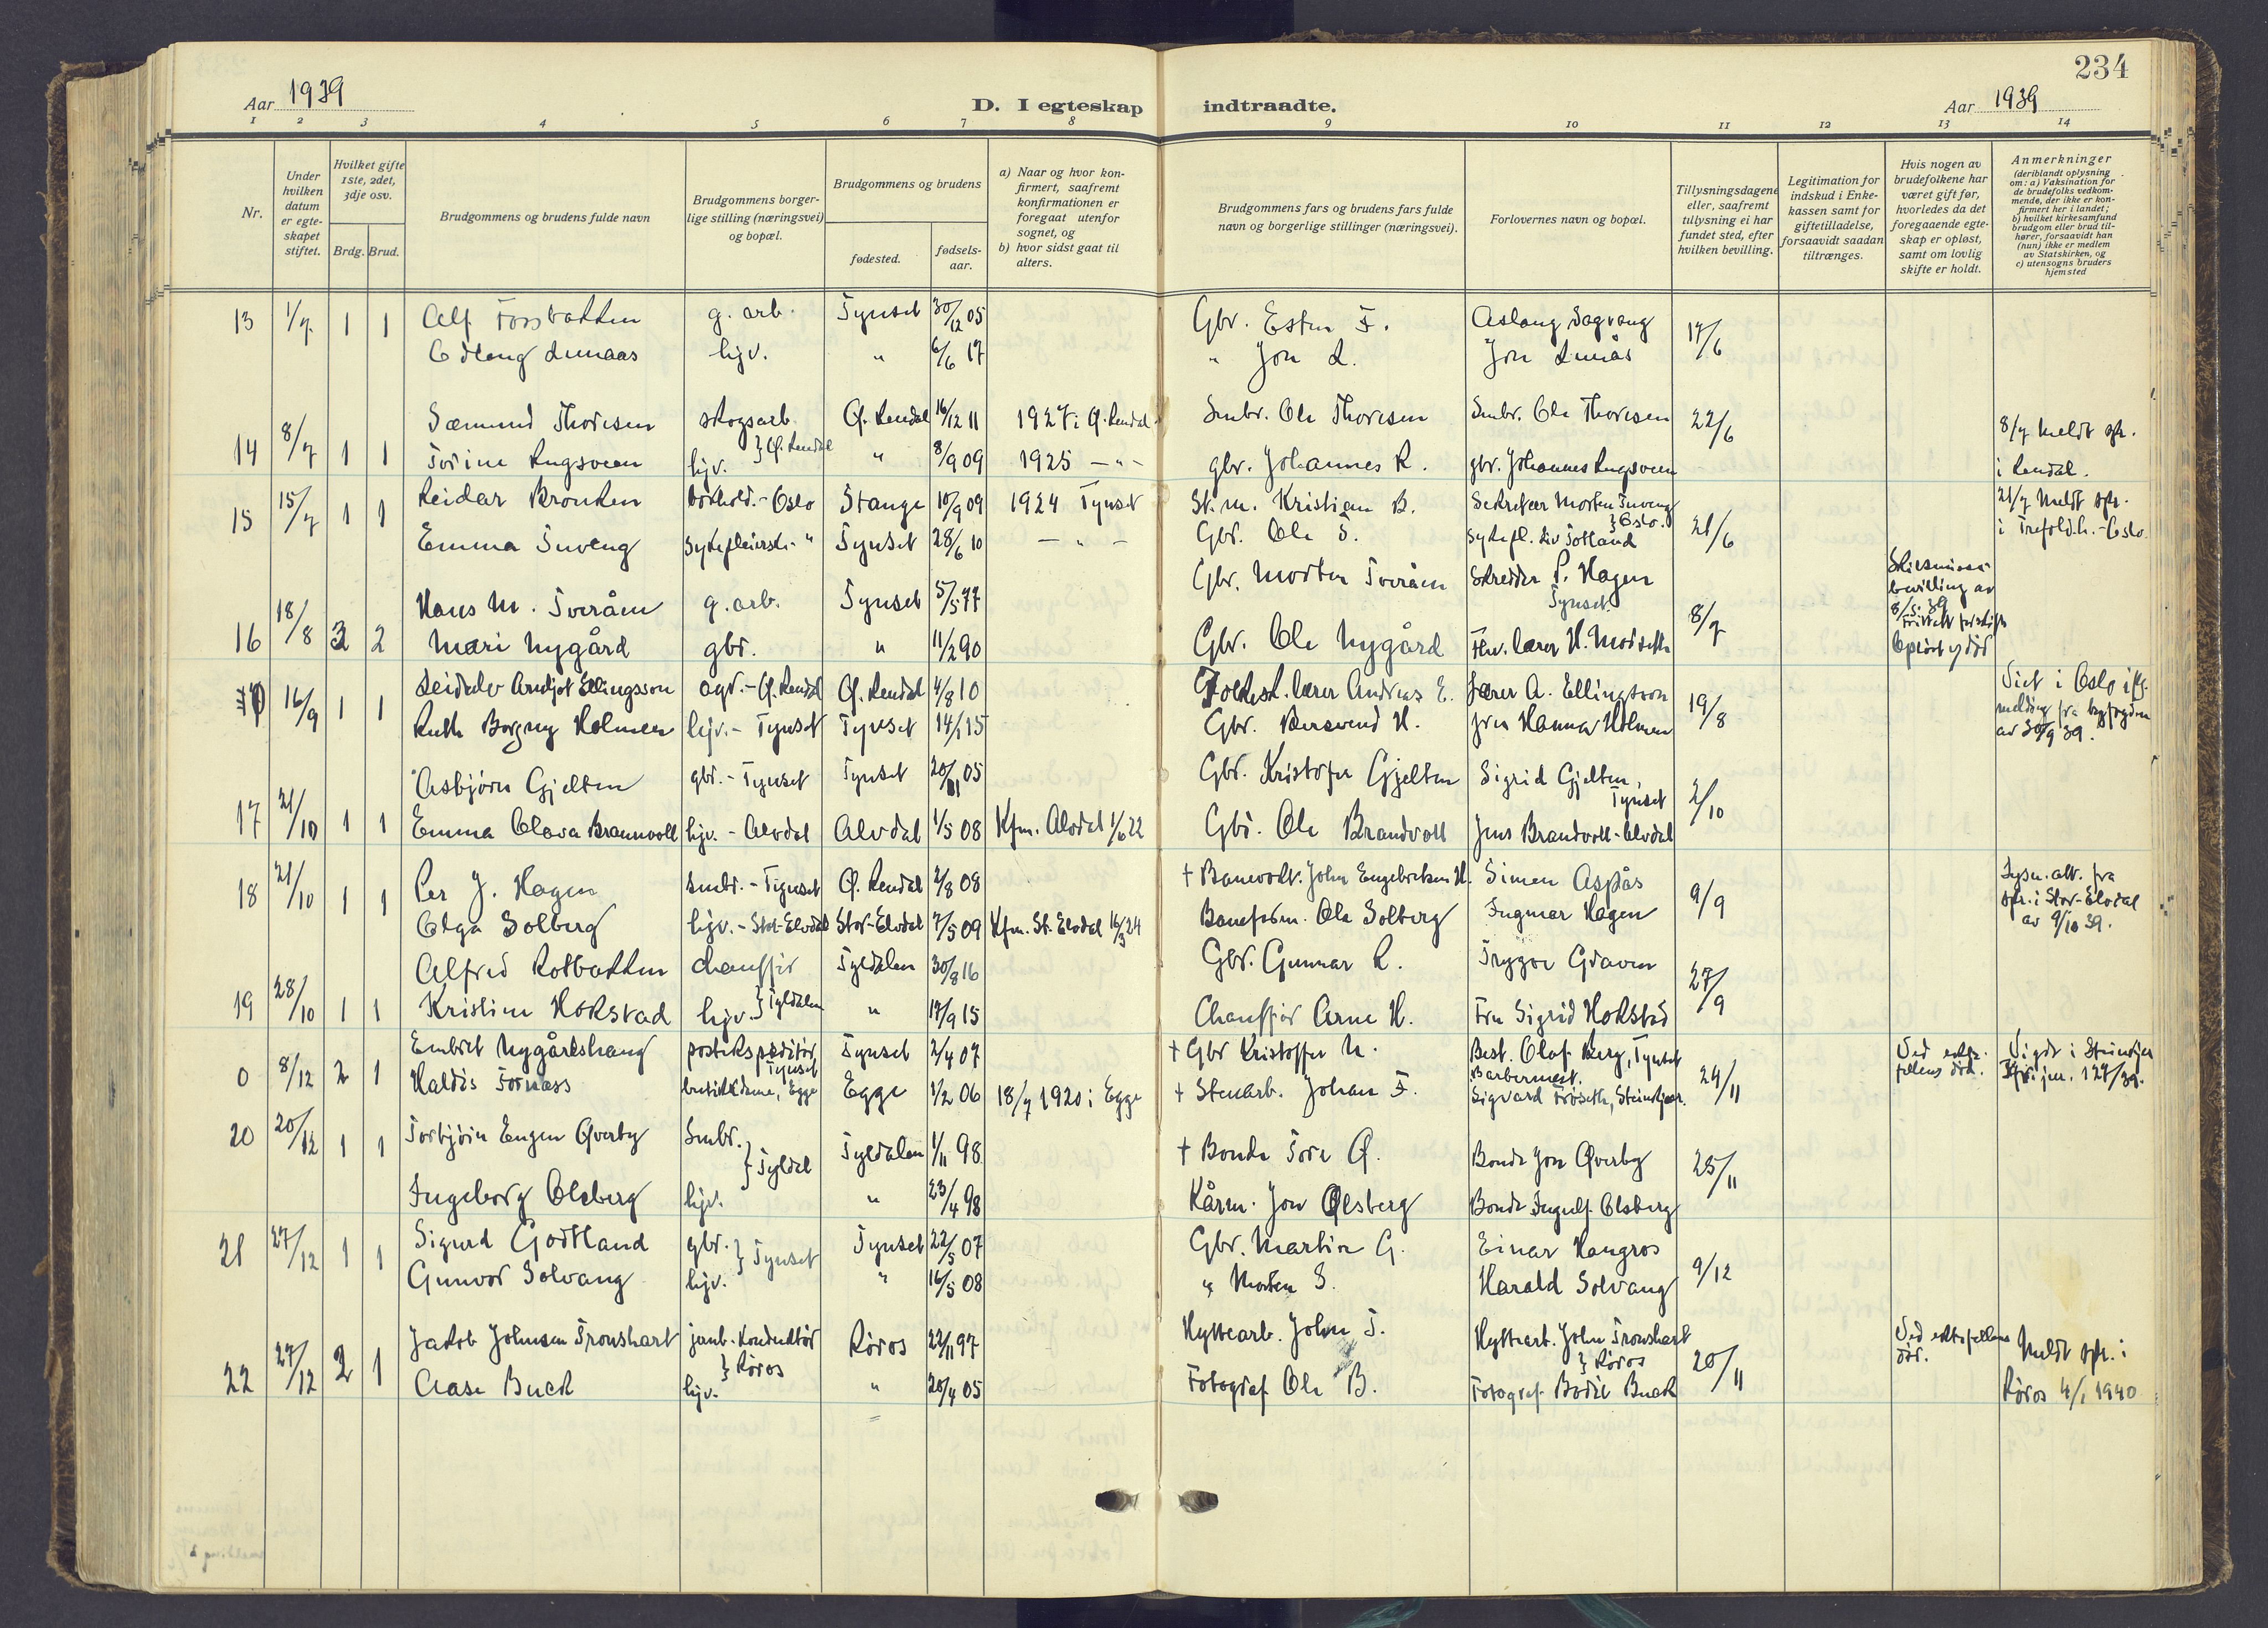 234
Aar 1939
D. I egteskap indtraadte.
Aar 1939
1 2 3 4 5 6 7 8 9 10 11 12 13 14
Nr.
Under hvilken datum er egteskapet stiftet.
Hvilket gifte 1ste, 2det, 3dje osv.
Brdg. Brud.
Brudgommens og brudens fulde navn
Brudgommens borgerlige stilling (næringsvei) og bopæl.
Brudgommens og brudens
fødested.
fødselsaar.
a) Naar og hvor konfirmert, saafremt konfirmationen er foregaat utenfor sognet, og
b) hvor sidst gaat til alters.
Brudgommens fars og brudens fars fulde navn og borgerlige stillinger (næringsvei).
Forlovernes navn og bopæl.
Tillysningsdagene eller, saafremt tillysning ei har fundet sted, efter hvilken bevilling.
Legitimation for indskud i Enkekassen samt for giftetilladelse, forsaavidt saadan tiltrænges.
Hvis nogen av brudefolkene har været gift før, hvorledes da det foregaaende egteskap er opløst, samt om lovlig skifte er holdt.
Anmerkninger (deriblandt oplysning om: a) Vaksination for de brudefolks vedkommende, der ikke er konfirmert her i landet; b) hvilket kirkesamfund brudgom eller brud tilhører, forsaavidt han (hun) ikke er medlem av Statskirken, og c) utensogns bruders hjemsted
13 1/7 1 1 Alf Fossbakken g. arb. Tynset 30/12 05 Gbr. Esten F. Aslaug Sagvang 17/6
Odlaug Lunaas hjv. " 6/6 17 " Jon L. Jon Lunås
Sæmund Thoresen skogsarb. Ø. Rendal 16/12 11 1927 i Ø. Rendal Smbr. Ole Thoresen Smbr. Ole Thoresen 22/6 8/7 meldt spr.
14 8/7 1 1 Torine Rugsveen hjv. } Ø. Rendal " 8/9 09 1925 - " - gbr. Johannes R. gbr. Johannes Rugsveen i Rendal.
15 15/7 1 1 Reidar Bronken bokhold. - Oslo Stange 10/9 09 1924 Tynset St.m. Kristian B. Sekretær Morten Tuveng } Oslo. 21/6 21/7 meldt spr.
Emma Tuveng sykepleierske - " Tynset 28/6 10 - " - Gbr. Ole T. sykepl. Liv Totland i Trefold.h. - Oslo
Hans M. Tveråen g. arb. Tynset 5/5 77 Gbr. Morten Tveråen Skredder P. Hagen Tynset. 8/7 Skilsmissebevilling av 8/5. 39
16 18/8 3 2 Mari Nygård gbr. " 11/2 90 Gbr. Ole Nygård Fhv. lærer H. Morseth Opløst v. død
16/9 1 1 Leidulv Arnljot Ellingsson agr. - Ø. Rendal Ø. Rendal 4/8 10 Folkesk.lærer Andreas E. Lærer A. Ellingsson 19/8 Viet i Oslo ifg. melding fra byfogden av 30/9 39.
Ruth Borgny Holmen hjv. - Tynset Tynset 14/1 15 Gbr. Bersvend H. fru Hanna Holmen
Asbjørn Gjelten gbr. - Tynset Tynset 20/11 05 Gbr. Kristofer Gjelten Sigrid Gjelten, Tynset 2/10
17 21/10 1 1 Emma Olava Brannvoll hjv. - Alvdal Alvdal 1/5 08 Kfm. Alvdal 1/6 22 Gbr. Ole Brandvoll Jens Brandvoll - Alvdal
18 21/10 1 1 Per J. Hagen smbr. - Tynset Ø. Rendal 2/8 08 † Banevokt. John Engebretsen H. Simen Aspås 9/9 Lysn.att. fra spr. i Stor-Elvdal av 9/10 39.
Olga Solberg hjv. - Stor-Elvdal Stor-Elvdal 7/5 09 Kfm. St. Elvdal 16/3 24 Baneform. Ole Solberg Ingmar Hagen
Alfred Rotbakken chauffør Tyldalen 30/8 16 Gbr. Gunnar R. Trygve Graven 27/9
19 28/10 1 1 Kristine Hokstad hjv. } Tyldalen " 17/9 15 Chauffør Arne H. Fru Sigrid Hokstad
Embret Nygårdshaug postekspeditør Tynset Tynset 2/4 07 † Gbr Kristoffer N. Best. Olaf Berg, Tynset Ved ektefellens død. Vigdt i Steinkjer
0 8/12 2 1 Haldis Fornæss butikkdame, Egge Egge 1/2 06 18/7 1920 i Egge † Stenarb. Johan F. Barbermest. Sigvard Frøseth, Steinkjær. 24/11
20 20/12 1 1 Torbjørn Eugen Øverby Smbr. } Tyldal Tyldalen 1/11 98 † Bonde Tore Ø. Bonde Jon Øverby 25/11
Ingeborg Olsberg hjv. " 23/4 98 Kårm. Jon Olsberg Bonde Ingulf Olsberg
21 27/12 1 1 Sigurd Godtland gbr. } Tynset Tynset 22/5 07 Gbr. Martin G. Einar Haugros 9/12
Gunvor Solvang hjv. " 16/5 08 " Morten S. Harald Solvang
Jakob Johnsen Tronshart jernb. konduktør Røros 22/11 97 Hyttearb. John T. Hyttearb. John Tronshart } Røros 20/11 Ved ektefellens død. Meldt spr. i
22 27/12 2 1 Aase Buck hjv. } Røros " 20/4 05 Fotograf Ole B. Fotograf Bodil Buck Røros 4/1 1940